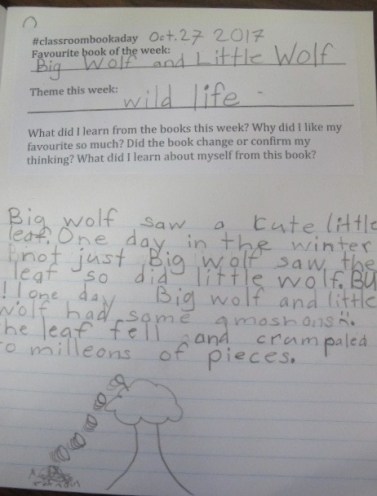 #classroombookaday Oct.27 2017
Favourite book of the week:
Big Wolf and Little Wolf
Theme this week:
wild life
What did I learn from the books this week? Why did I like my
favourite so much? Did the book change or confirm my
thinking? What did I learn about myself from this book?
Big wolf saw a cute little
leaf. One day in the winter
not just Big wolf saw the
leaf so did little wolf. Bu
one day Big wolf and little
wolf had some amoshons
he leaf fell and crumpaled
o milleons of pieces.